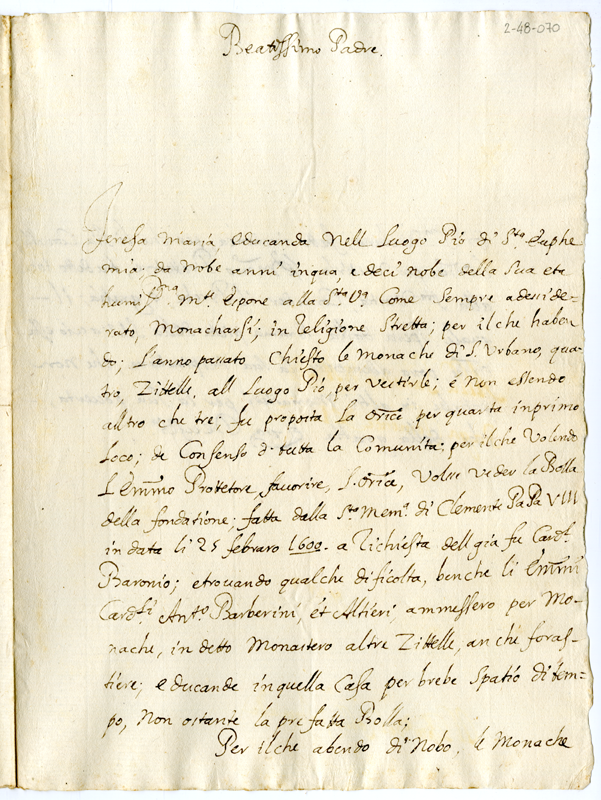 2-48-070
Beatissimo Padre.
Teresa Maria educanda Nell Luogo Pio di S.ta Euphe
mia; da Nobe anni inqua, e deci nobe della Sua eta
humiss.ma m.te Espone alla S.ta V.a Come Sempre a desside-
rato, Monacharsi; in Religione Stretta; per il che haben
do; L'anno passato Chiesto le Monache di S. Urbano, qua-
tro, Zittelle, all Luogo Pio per vestirle; é Non essendo
alltro che tre; fu proposta La Oricè per quarta inprimo
Loco; de Consenso d. tutta la Comunita; per il che Volendo
L'Emmo Prottetore, fauorire, L'Oricè, Volse veder la Bolla
della fondatione; fatta dalla S.ta Mem.a di Clemente PaPa VIII
in data li 25 febraro 1600. a Richiesta dell già fu Card.l
Baronio; e trouando qualche dificolta, benche li Emmi
Card.li Ant.o Barberini, et Altieri, ammessero per Mo-
nache, in detto Monastero altre Zittelle, anche foras-
tiere; educande inquella Casa per brebe Spatio di tem=
po, Non ostante la prefatta Bolla;
Per il che abendo di Nobo, le Monache